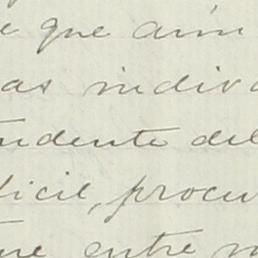 e que aun
as indiv
ndente del
ficil, procu
que entre